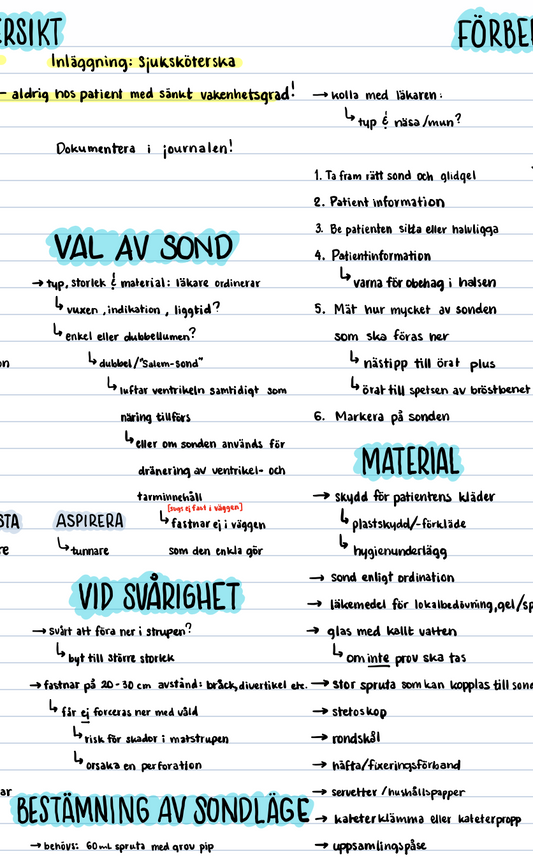 ERSIKT
Inläggning: Sjuksköterska
– aldrig hos patient med sänkt vakenhetsgrad!
Dokumentera i journalen!
VAL AV SOND
→ typ, storlek & material: läkare ordinerar
↳ vuxen, indikation, liggtid?
↳ enkel eller dubbellumen?
↳ dubbel/"Salem-sond"
↳ luftar ventrikeln samtidigt som
näring tillförs
↳ eller om sonden används för
dränering av ventrikel- och
tarminnehåll
[sugs ej fast i väggen]
↳ fastnar ej i väggen
som den enkla gör
on
STA
re
ASPIRERA
↳ tunnare
VID SVÅRIGHET
→ svårt att föra ner i strupen?
↳ byt till större storlek
→ fastnar på 20-30 cm avstånd: bråck, divertikel etc.
↳ får ej forceras ner med våld
↳ risk för skador i matstrupen
↳ orsaka en perforation
ar
BESTÄMNING AV SONDLÄGE
→ behövs: 60mL spruta med grov pip
FÖRBE
→ kolla med läkaren:
↳ typ & näsa/mun?
1. Ta fram rätt sond och glidgel
2. Patient information
3. Be patienten sitta eller halvligga
4. Patientinformation
↳ varna för obehag i halsen
5. Mät hur mycket av sonden
som ska föras ner
↳ nästipp till örat plus
↳ örat till spetsen av bröstbenet
6. Markera på sonden
MATERIAL
→ skydd för patientens kläder
↳ plastskydd/-förkläde
↳ hygienunderlägg
→ sond enligt ordination
→ läkemedel för lokalbedövning, gel/sp
→ glas med kallt vatten
↳ om inte prov ska tas
→ stor spruta som kan kopplas till sond
→ stetoskop
→ rondskål
→ häfta/fixeringsförband
→ servetter/hushållspapper
→ kateterklämma eller kateterpropp
→ uppsamlingspåse